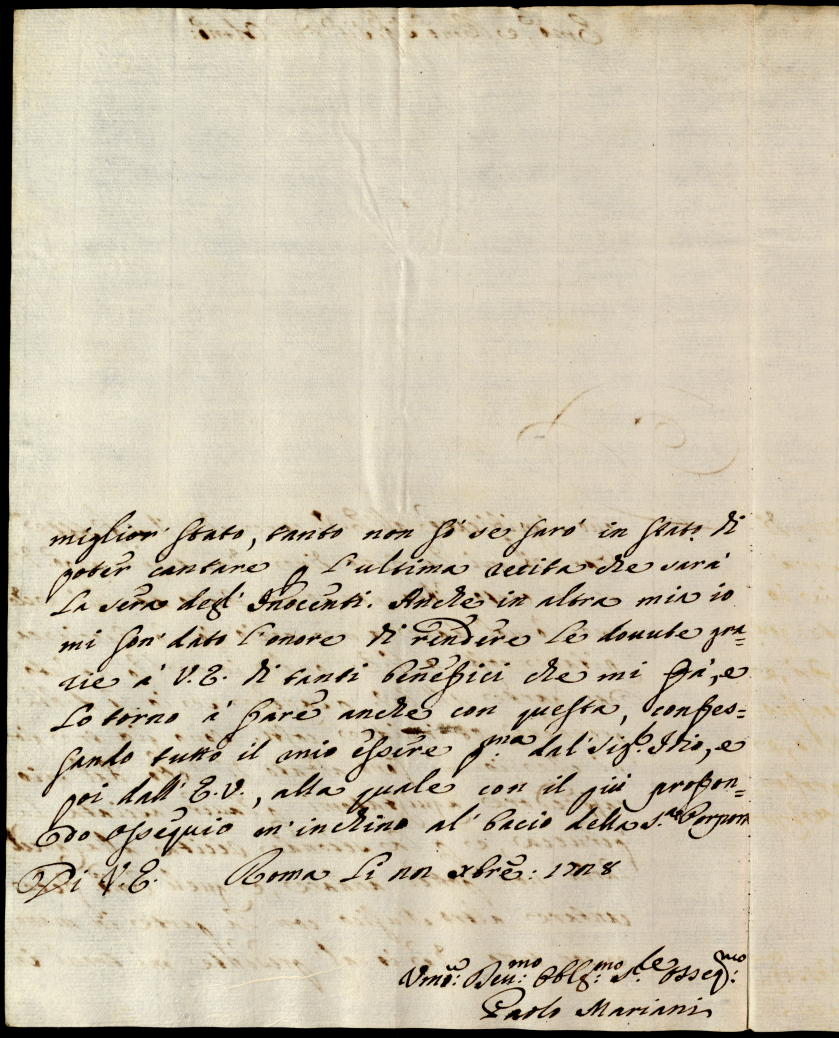 miglior' stato, tanto non sò se sarò in stato di
poter cantare p l'ultima recita che sarà
la sera degl' Inocenti. Anche in altra mia io
mi son' dato l'onore di rendere le douute gra=
zie à V.E. di tanti benefici che mi fà, e
lo torno à fare anche con questa, confes=
sando tutto il mio essere p.ma dal' Sig.r Idio, e
poi dall' E.V., alla quale con il più profon=
do ossequio m'inchino al' bacio della S.ra
Di V.E. Roma li xbre: 1728
Vmo: Deu:mo Obblg:mo S.le osseq:mo
Paolo Mariani